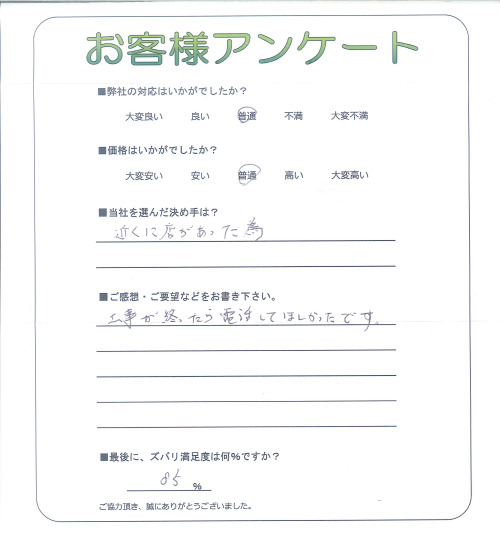 お客様アンケート
■弊社の対応はいかがでしたか？
大変良い 良い 普通 不満 大変不満
■価格はいかがでしたか？
大変安い 安い 普通 高い 大変高い
■当社を選んだ決め手は？
近くに店があった為
■ご感想・ご要望などをお書き下さい。
工事が終ったら電話してほしかったです。
■最後に、ズバリ満足度は何%ですか？
85 %
ご協力頂き、誠にありがとうございました。